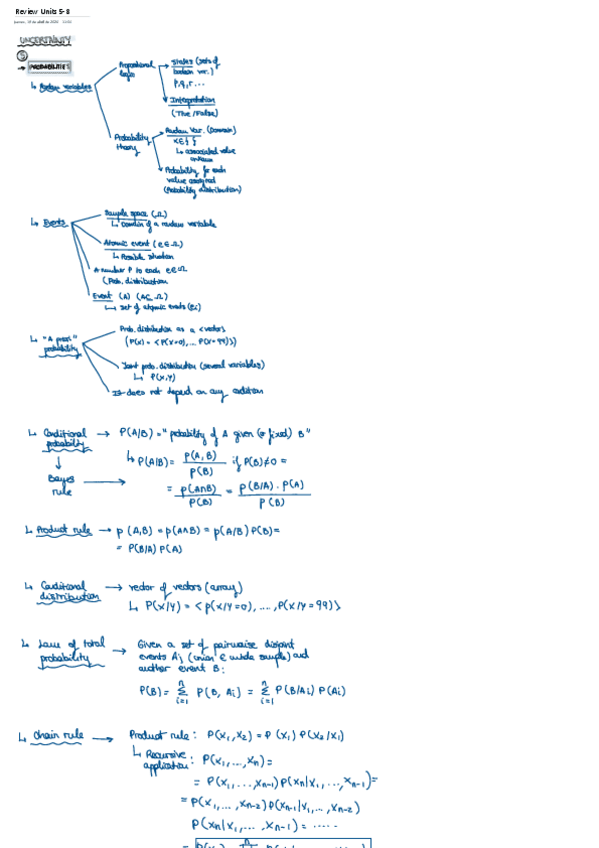 Review Units 5-8
UNCERTAINTY
⑤
→ PROBABILITIES
↳ Random variables
Propositional logic
→ States (sets of boolean var.)
p,q,r...
Interpretation
(True/False)
Probability theory
Random Var. (Domain)
X∈{ }
↳ associated value
unknown
Probability for each
value assigned
(Probability distribution)
↳ Events
Sample space (Ω)
↳ Domain of a random variable
Atomic event (e∈Ω)
↳ Possible situation
A number P to each e∈Ω
(Prob. distribution
Event (A) (A⊆Ω)
↳ set of atomic events (ei)
↳ "A priori" probability
Prob. distribution as a <vector>
(P(X) = <P(X=0),... P(X=99)>)
Joint prob. distribution (several variables)
↳ P(X,Y)
It does not depend on any condition
↳ Conditional probability → P(A/B) = "probability of A given (or fixed) B"
↳ P(A|B) = P(A,B) / P(B) if P(B)≠0 =
↓
Bayes rule →
= P(A∩B) / P(B) = P(B/A) . P(A) / P(B)
↳ Product rule → p (A,B) = p(A∧B) = p(A/B) P(B) =
= P(B/A) P(A)
↳ Conditional distribution → vector of vectors (array)
↳ P(X/Y) = <p(X/Y=0), ...., P(X/Y=99)>
↳ Law of total probability → Given a set of pairwaise disjoint
events Ai (union = whole sample) and
another event B:
P(B) = Σ(i=1..n) P(B, Ai) = Σ(i=1..n) P(B/Ai) P(Ai)
↳ Chain rule → Product rule: P(X₁,X₂) = P(X₁) P(X₂/X₁)
↳ Recursive application: P(X₁,...,Xn) =
= P(X₁,...,Xn-1) P(Xn|X₁,...,Xn-1) =
= P(X₁,...,Xn-2) P(Xn-1|X₁,...,Xn-2)
P(Xn|X₁,...,Xn-1) = .....